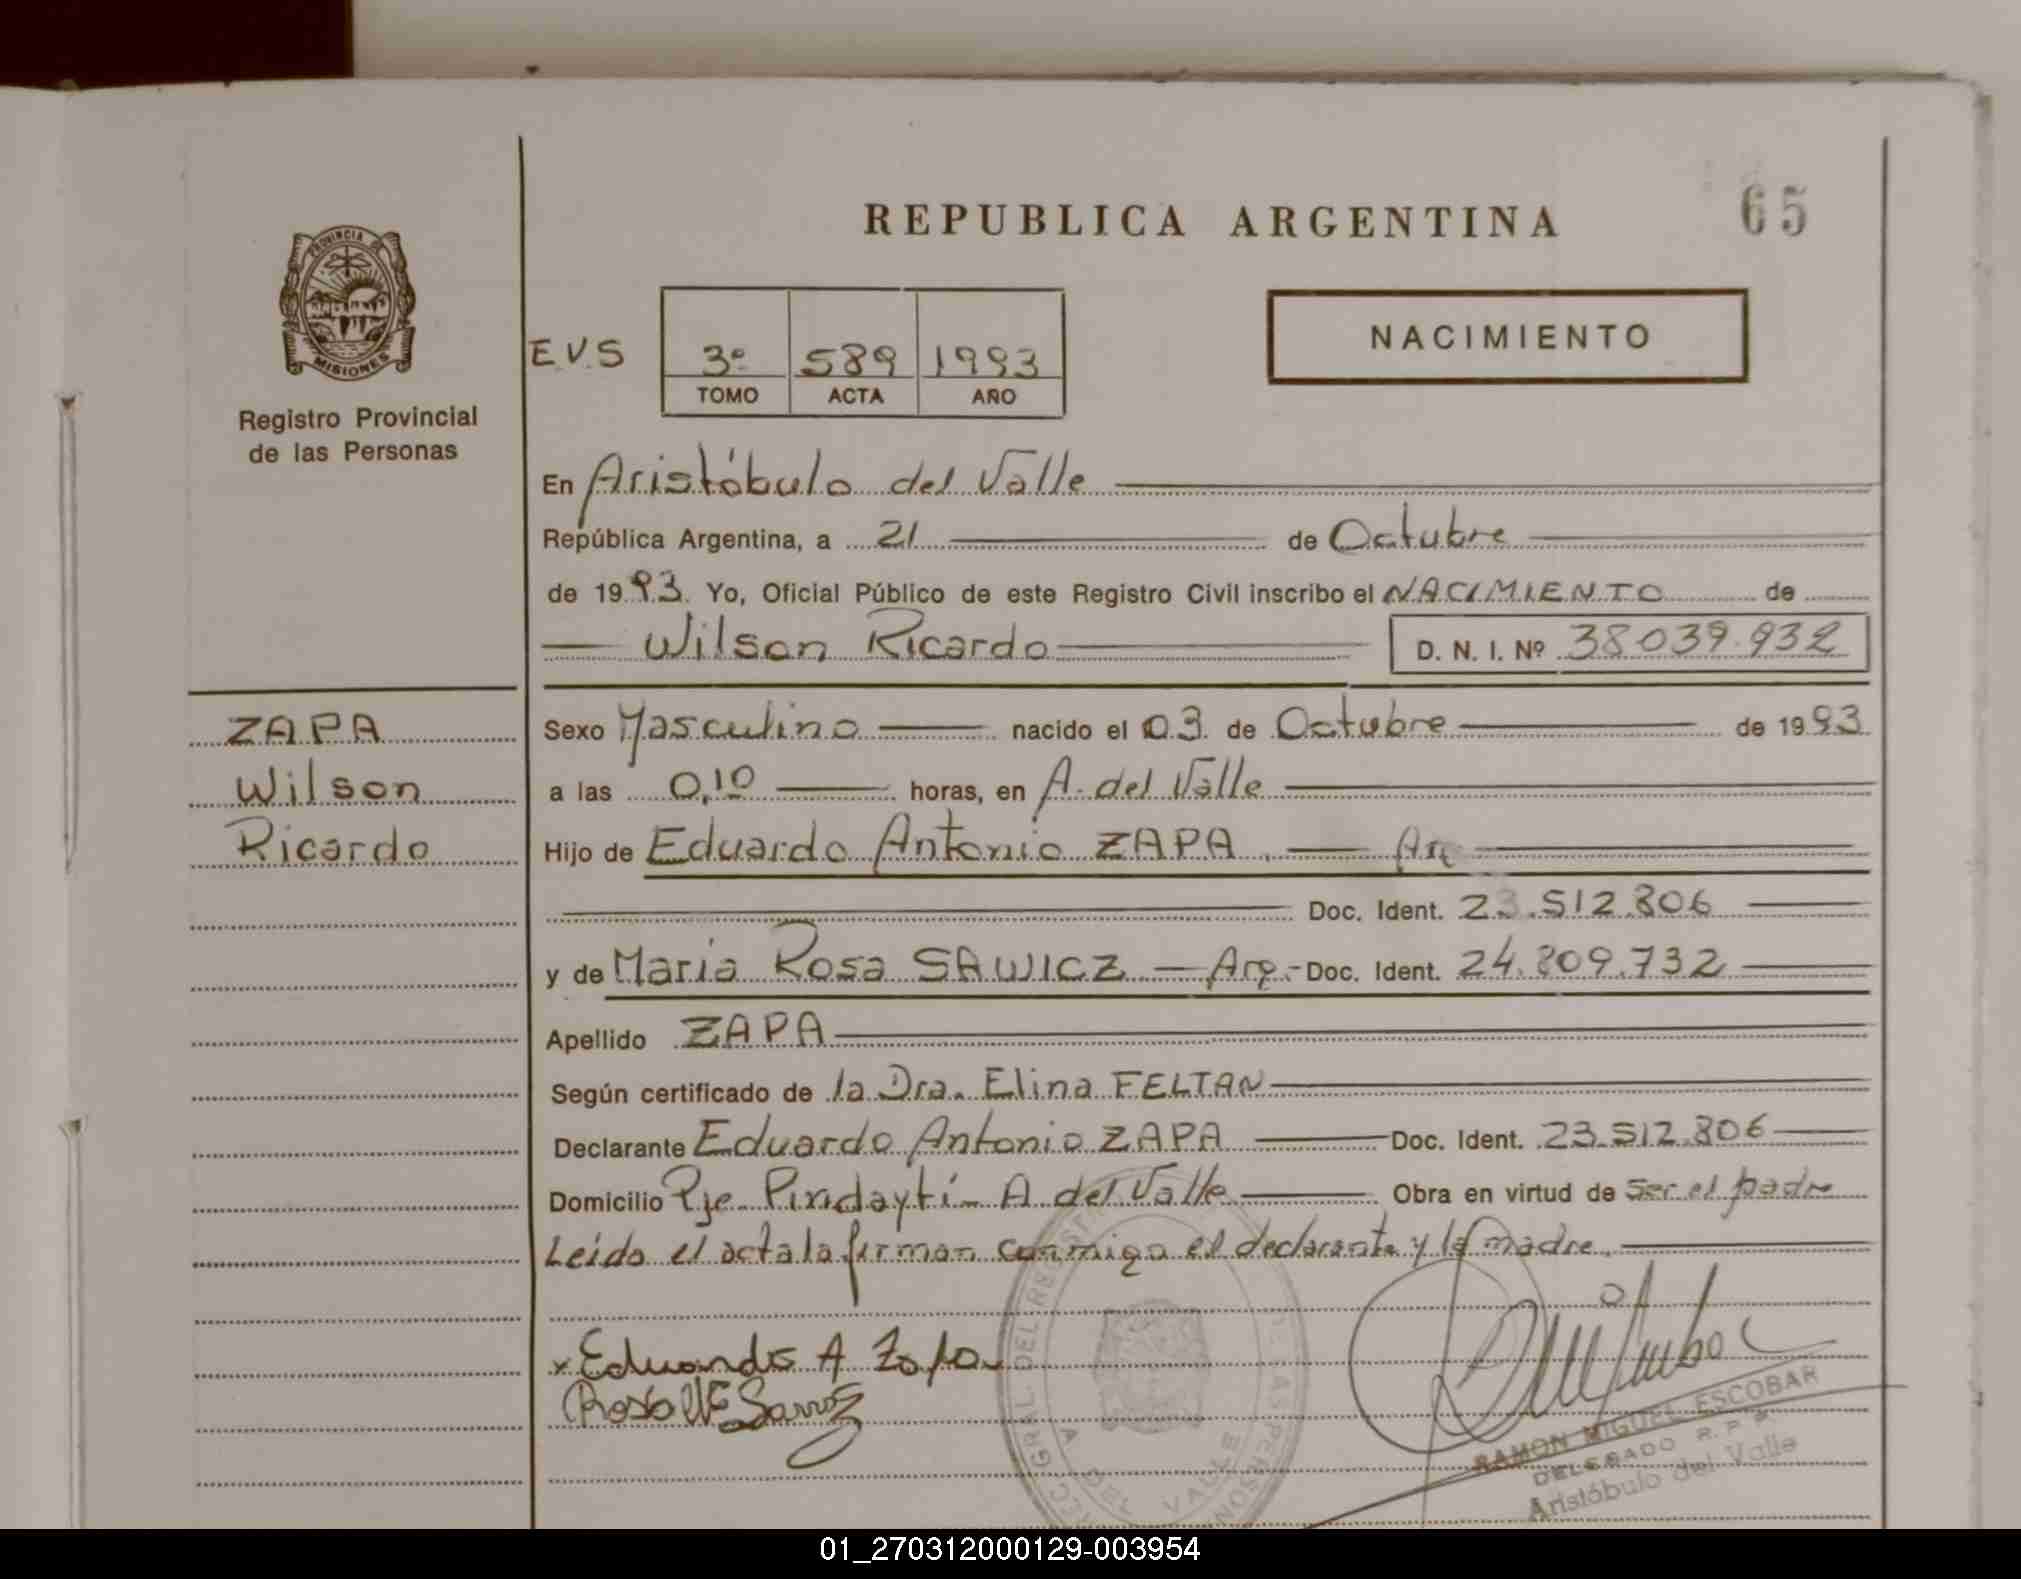 REPUBLICA ARGENTINA
65
PROVINCIA DE
MISIONES
Registro Provincial
de las Personas
E.V.S
3º 589 1993
TOMO ACTA AÑO
NACIMIENTO
En Aristóbulo del Valle
República Argentina, a 21 de Octubre
de 1993. Yo, Oficial Público de este Registro Civil inscribo el NACIMIENTO de
Wilson Ricardo D. N. I. Nº 38039.932
ZAPA
Wilson
Ricardo
Sexo Masculino nacido el 03 de Octubre de 1993
a las 0,10 horas, en A. del Valle
Hijo de Eduardo Antonio ZAPA. Arg
Doc. Ident. 23.512.806
y de Maria Rosa SAWICZ — Arg.- Doc. Ident. 24.809.732
Apellido ZAPA
Según certificado de la Dra. Elina FELTAN
Declarante Eduardo Antonio ZAPA Doc. Ident. 23.512.806
Domicilio Pje. Pindaytí - A del Valle Obra en virtud de ser el padre
Leído el acta la firman conmigo el declarante y la madre.
x Eduardo A Zapa
RAMON MIGUEL ESCOBAR
DELEGADO R. P.
Aristóbulo del Valle
GRAL DEL REGIST
DEL VALLE
01_270312000129-003954